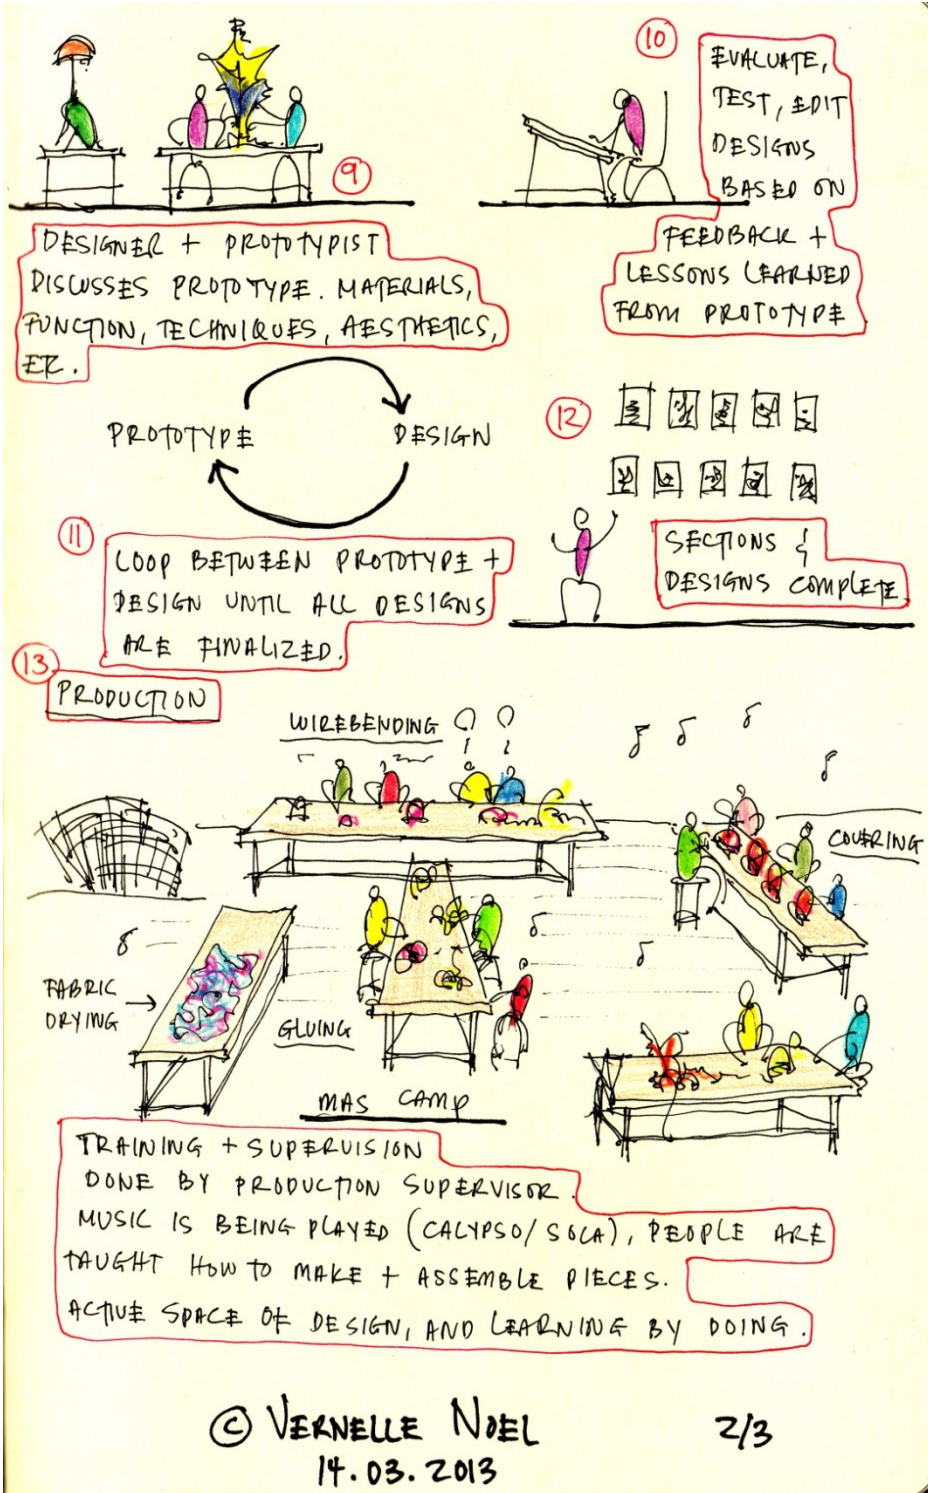 9
DESIGNER + PROTOTYPIST
DISCUSSES PROTOTYPE. MATERIALS,
FUNCTION, TECHNIQUES, AESTHETICS,
ETC.
10
EVALUATE,
TEST, EDIT
DESIGNS
BASED ON
FEEDBACK +
LESSONS LEARNED
FROM PROTOTYPE
PROTOTYPE DESIGN
11
LOOP BETWEEN PROTOTYPE +
DESIGN UNTIL ALL DESIGNS
ARE FINALIZED.
12
SECTIONS &
DESIGNS COMPLETE
13
PRODUCTION
WIREBENDING
COVERING
FABRIC
DRYING
GLUING
MAS CAMP
TRAINING + SUPERVISION
DONE BY PRODUCTION SUPERVISOR.
MUSIC IS BEING PLAYED (CALYPSO/SOCA), PEOPLE ARE
TAUGHT HOW TO MAKE + ASSEMBLE PIECES.
ACTIVE SPACE OF DESIGN, AND LEARNING BY DOING.
© VERNELLE NOEL 2/3
14.03.2013